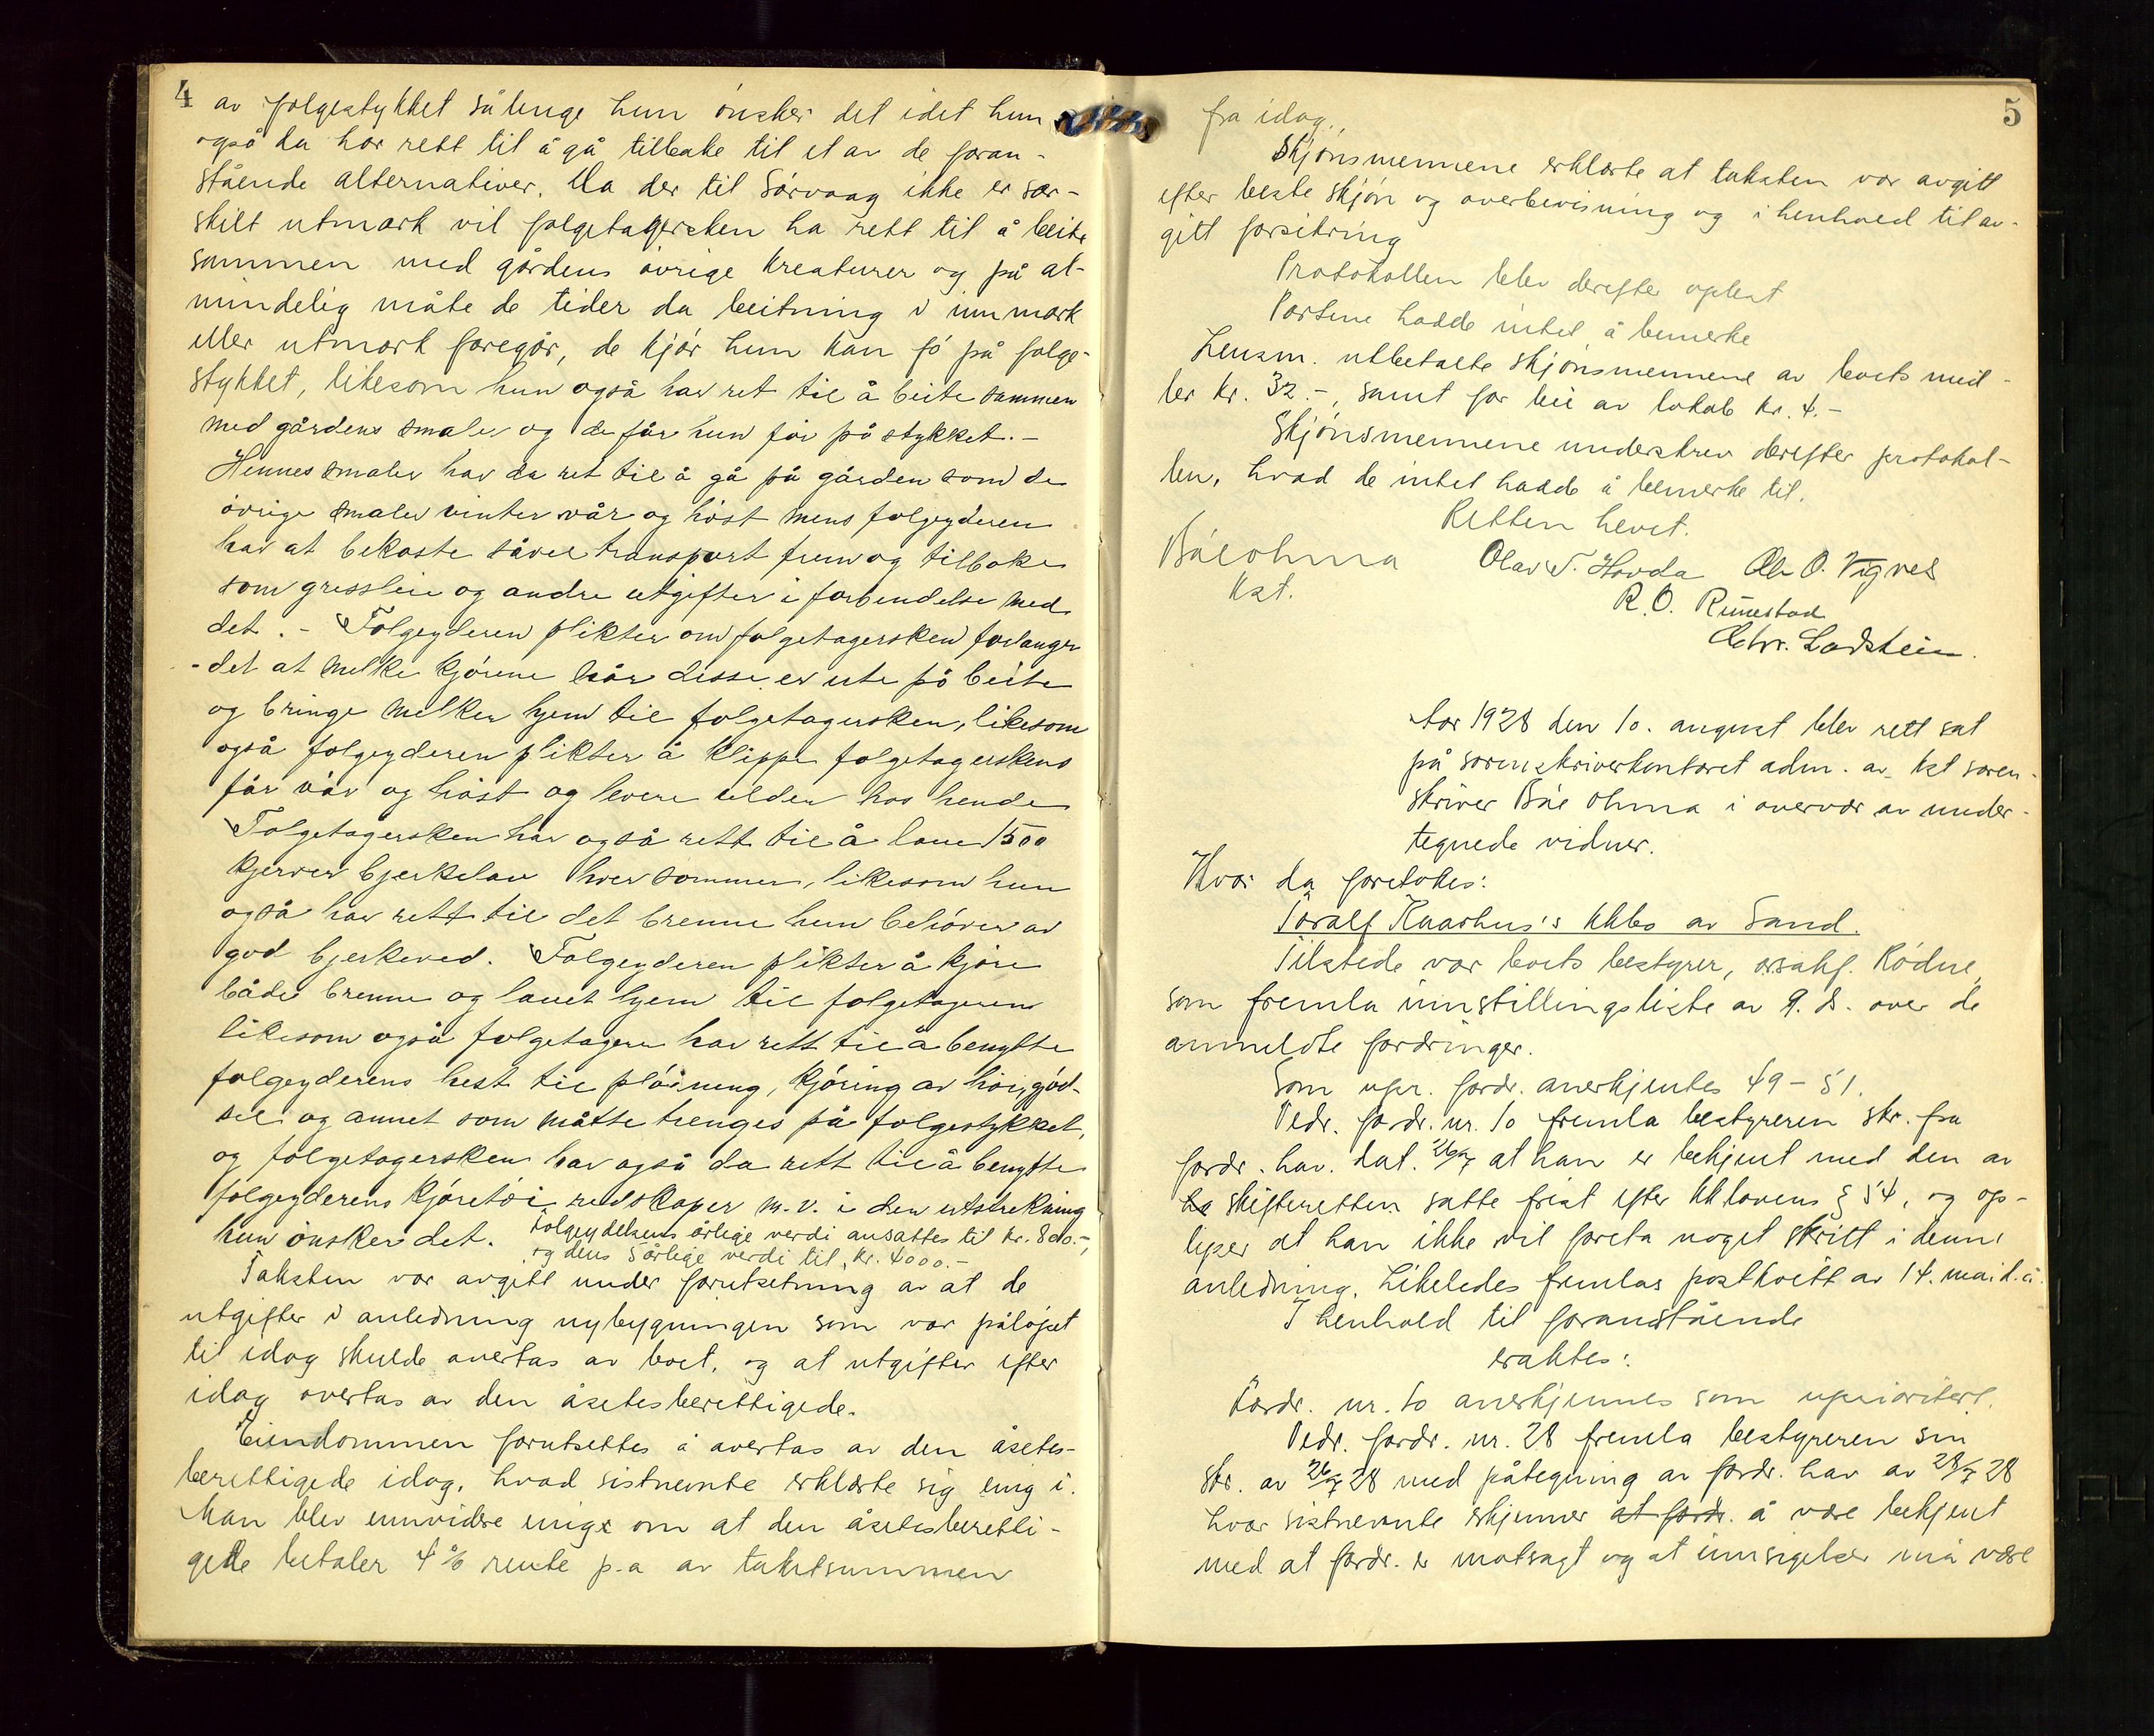 4
av folgestykket sålenge hun ønsker det idet hun
også da har rett til å gå tilbake til et av de foran-
stående alternativer. Da der til Sørvaag ikke er sær-
skilt utmark vil folgetagersken ha rett til å beite
sammen med gårdens øvrige kreaturer og på al-
mindelig måte de tider da beitning i innmark
eller utmark foregår, de kjør hun kan fø på folge-
stykket, likesom hun også har ret til å beite sammen
med gårdens smaler og de får hun før på stykket.-
Hennes smaler har da ret til å gå på gården som de
øvrige smaler vinter vår og høst mens folgeyderen
har at bekoste såvel transport frem og tilbake
som gressleie og andre utgifter i forbindelse med
det.- Folgeyderen plikter om folgetagersken forlanger
-det at melke kjørene når disse er ute på beite
og bringe melken hjem til folgetagersken, likesom
også folgeyderen plikter å klippe folgetagerskens
får vår og høst og levere ulden hos hende
Folgetagersken har også rett til å lave 1500
kjerver bjerkelav hver sommer, likesom hun
også har rett til det brenne hun behøver av
god bjerkeved. Folgeyderen plikter å kjøre
både brenne og lauet hjem til folgetageren
likesom også folgetageren har rett til å benytte
folgeyderens hest til pløining, kjøring av høi, gjød-
sel og annet som måtte trenges på folgestykket,
og folgetagersken har også da rett til å benytte
folgeyderens kjøretøi redskaper m.v. i den utstrekning
hun ønsker det. Folgeydelsens årlige verdi ansattes til kr. 800.-,
og dens 5 årlige verdi til kr. 4000.-
Taksten var avgitt under forutsetning av at de
utgifter i anledning nybygningen som var påløpet
til idag skulde overtas av boet, og at utgifter efter
idag overtas av den åsetesberettigede.
Eiendommen forutsettes å overtas av den åsetes-
berettigede idag, hvad sistnevnte erklærte sig enig i.
Man blev innvidere enige om at den åsetesberetti-
gede betaler 4% rente p.a av takstsummen
5
fra idag.,
Skjønsmennene erklærte at taksten var avgitt
efter beste skjøn og overbevisning og i henhold til av-
gitt forsikring
Protokollen blev derefter oplest
Partene hadde intet å bemerke
Lensm. utbetalte skjønsmennene av boets mid-
ler kr. 32.-, samt for leie av lokale kr. 4.-
Skjønsmennene underskrev derefter protokol-
len, hvad de intet hadde å bemerke til.
Retten hevet.
Olav T. Hovda Ole O. Vignes
kst.
R. O. Rimestad
Chr. Ladstein.
Aar 1928 den 10. august blev rett sat
på sorenskriverkontoret adm. av kst soren-
skriver i overvær av under-
tegnede vidner.
Hvor da foretokes:
Toralf Kaarhus's kkbo av Sand.
Tilstede var boets bestyrer, orsakf. Rødne,
som fremla innstillingsliste av 9. ds. over de
anmeldte fordringer.
Som upr. fordr. anerkjentes 49 - 51.
Vedr. fordr. nr. 10 fremla bestyreren skr. fra
fordr. hav. dat. 26/7 at han er bekjent med den av
ha skifteretten satte frist efter kklovens § 54, og op-
lyser at han ikke vil foreta noget skritt i denne
anledning. Likeledes fremlas postkvitt av 14. mai d.å.
I henhold til foranstående
eraktes:
Fordr. nr. 10 anerkjennes som uprioritert.
Vedr. fordr. nr. 28 fremla bestyreren sin
skr. av 26/7 28 med påtegning av fordr. hav av 28/7 28
hvor sistnevnte erkjenner at fordr. å være bekjent
med at fordr. er motsagt og at innsigelser må være